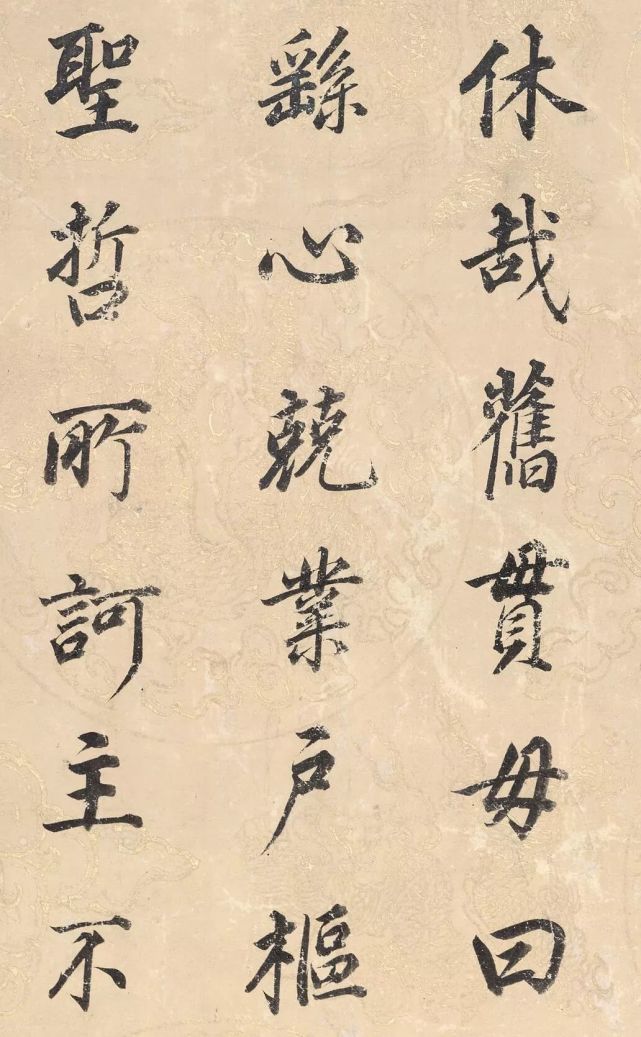 休哉舊貫毋曰
繇心兢業戶樞
聖哲所訶主不